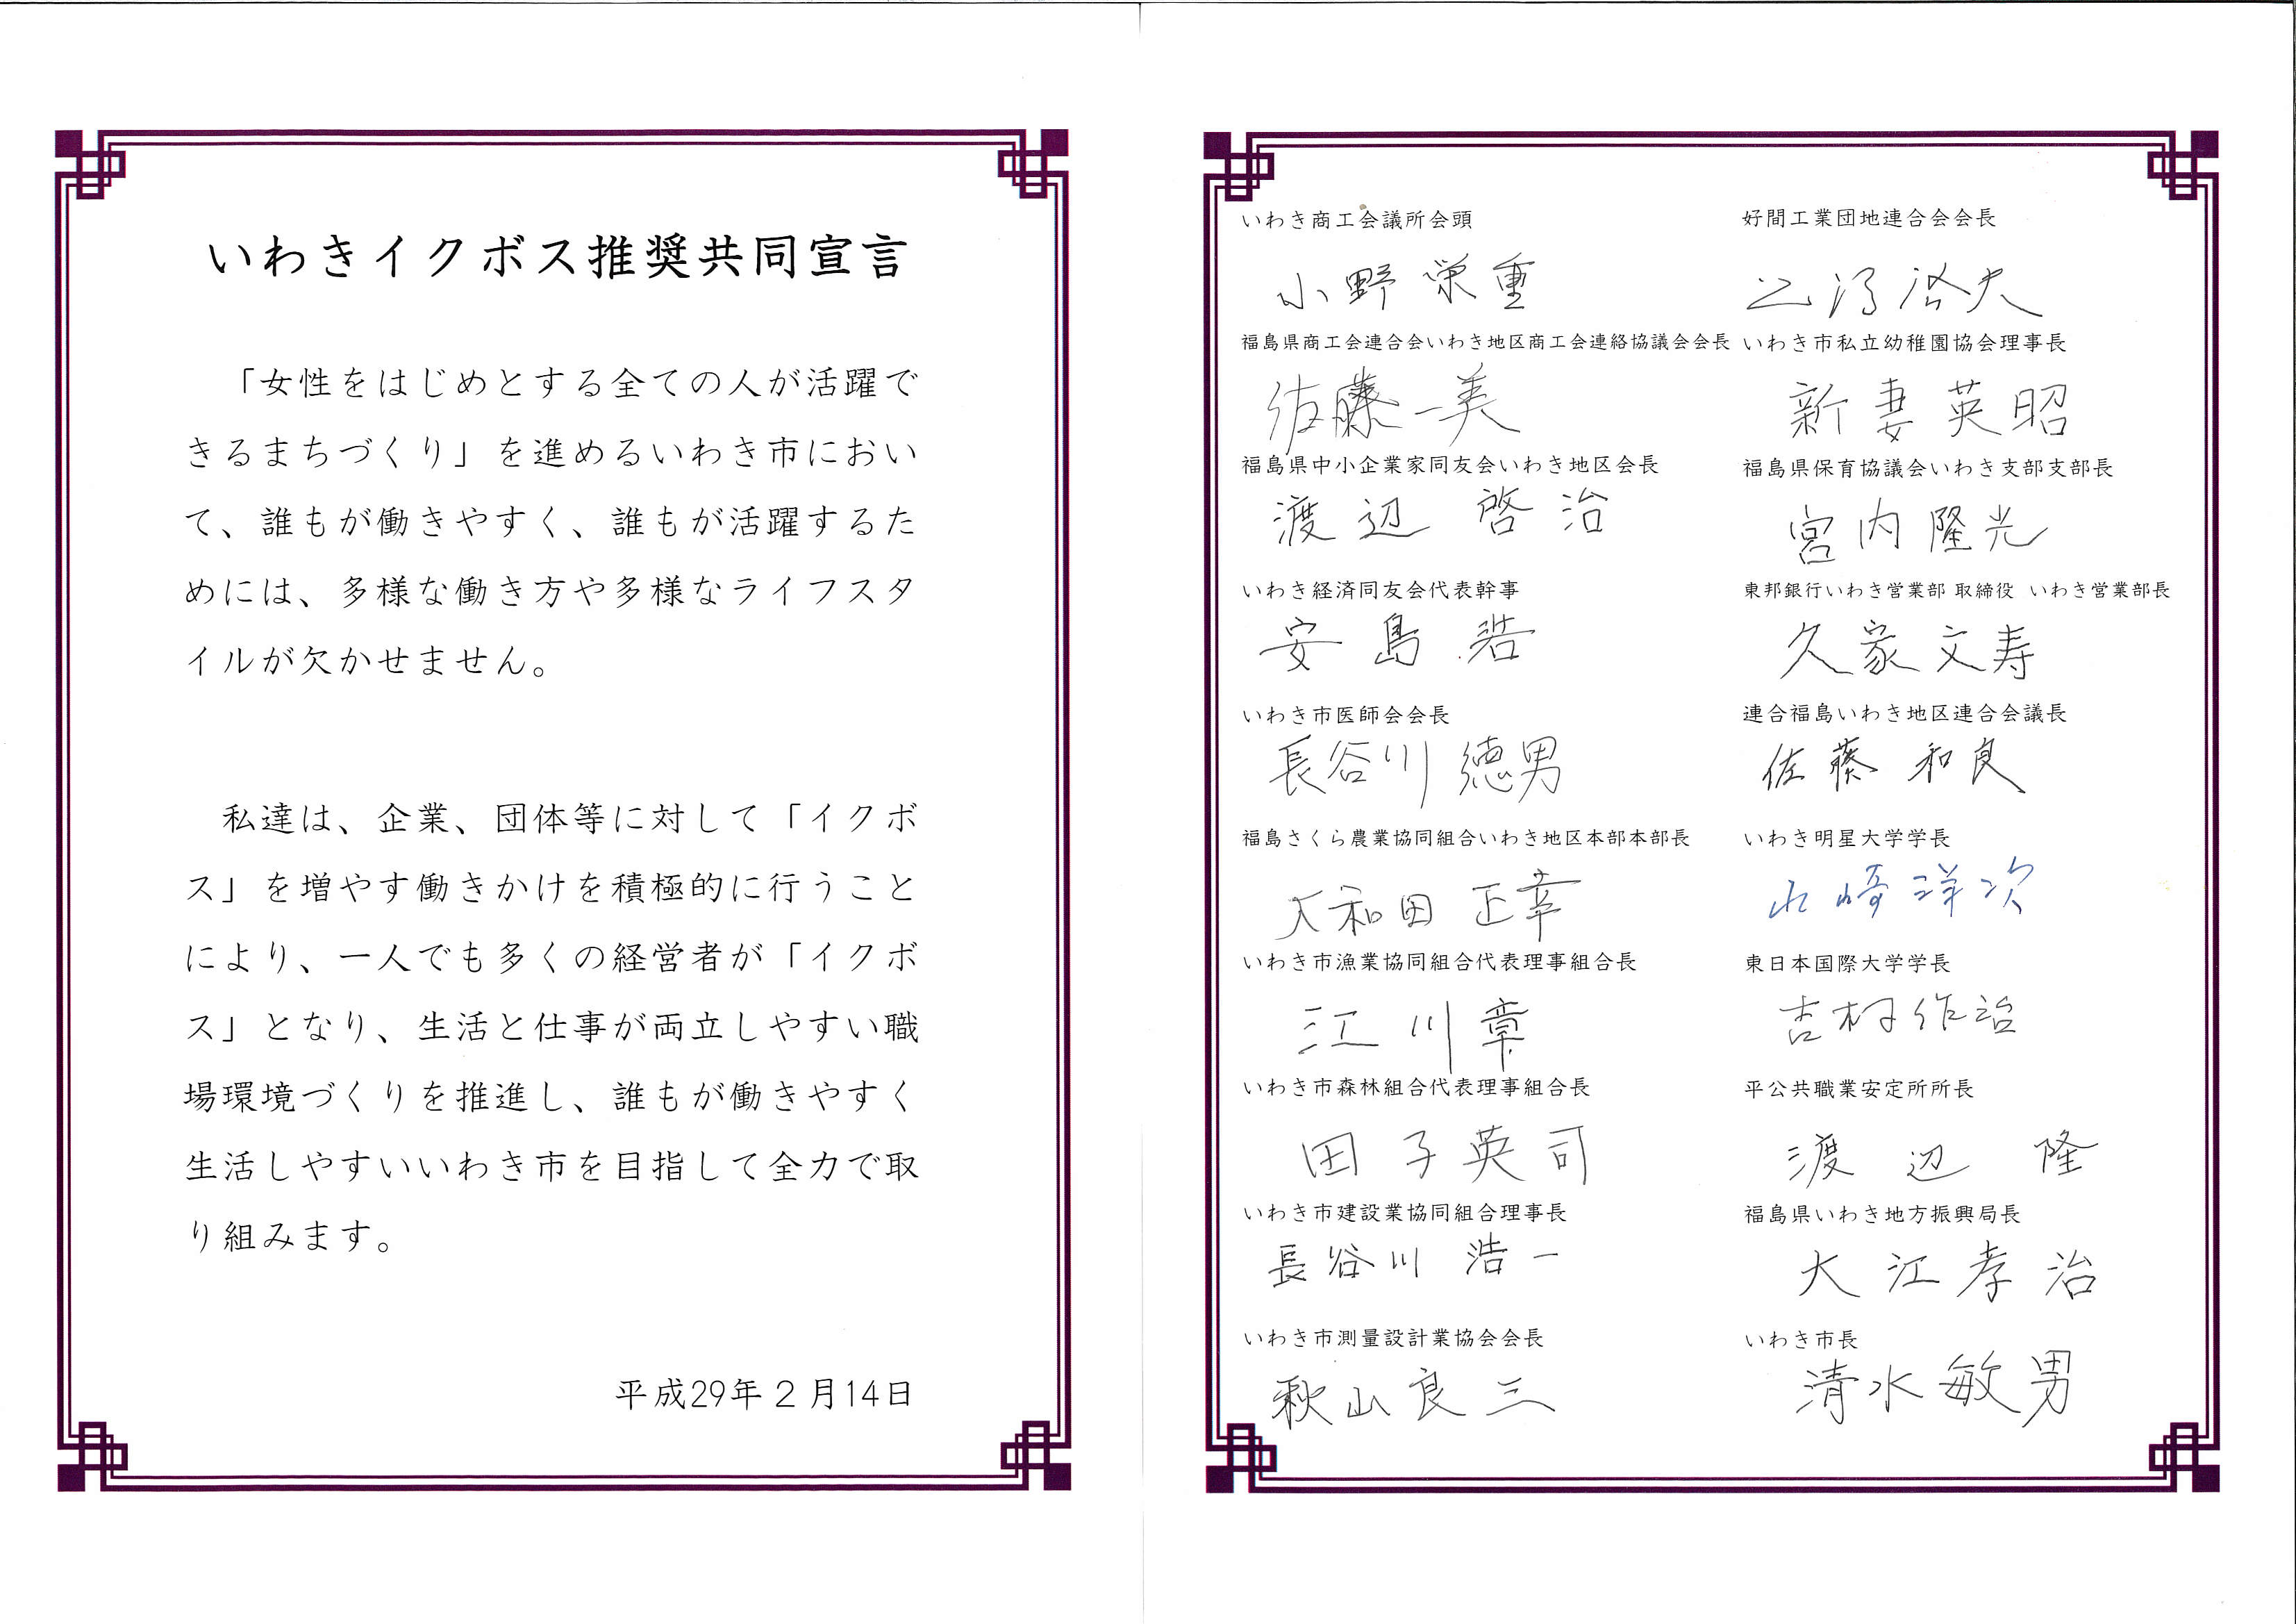 いわきイクボス推奨共同宣言
「女性をはじめとする全ての人が活躍で
きるまちづくり」を進めるいわき市におい
て、誰もが働きやすく、誰もが活躍するた
めには、多様な働き方や多様なライフスタ
イルが欠かせません。
私達は、企業、団体等に対して「イクボ
ス」を増やす働きかけを積極的に行うこと
により、一人でも多くの経営者が「イクボ
ス」となり、生活と仕事が両立しやすい職
場環境づくりを推進し、誰もが働きやすく
生活しやすいいわき市を目指して全力で取
り組みます。
平成29年２月14日
いわき商工会議所会頭
小野栄重
福島県商工会連合会いわき地区商工会連絡協議会会長
佐藤一美
福島県中小企業家同友会いわき地区会長
渡辺啓治
いわき経済同友会代表幹事
安島浩
いわき市医師会会長
長谷川徳男
福島さくら農業協同組合いわき地区本部本部長
大和田正幸
いわき市漁業協同組合代表理事組合長
江川章
いわき市森林組合代表理事組合長
田子英司
いわき市建設業協同組合理事長
長谷川浩一
いわき市測量設計業協会会長
秋山良三
好間工業団地連合会会長
いわき市私立幼稚園協会理事長
新妻英昭
福島県保育協議会いわき支部支部長
宮内隆光
東邦銀行いわき営業部 取締役 いわき営業部長
久家文寿
連合福島いわき地区連合会議長
佐藤和良
いわき明星大学学長
山崎洋次
東日本国際大学学長
吉村作治
平公共職業安定所所長
渡辺隆
福島県いわき地方振興局長
大江孝治
いわき市長
清水敏男